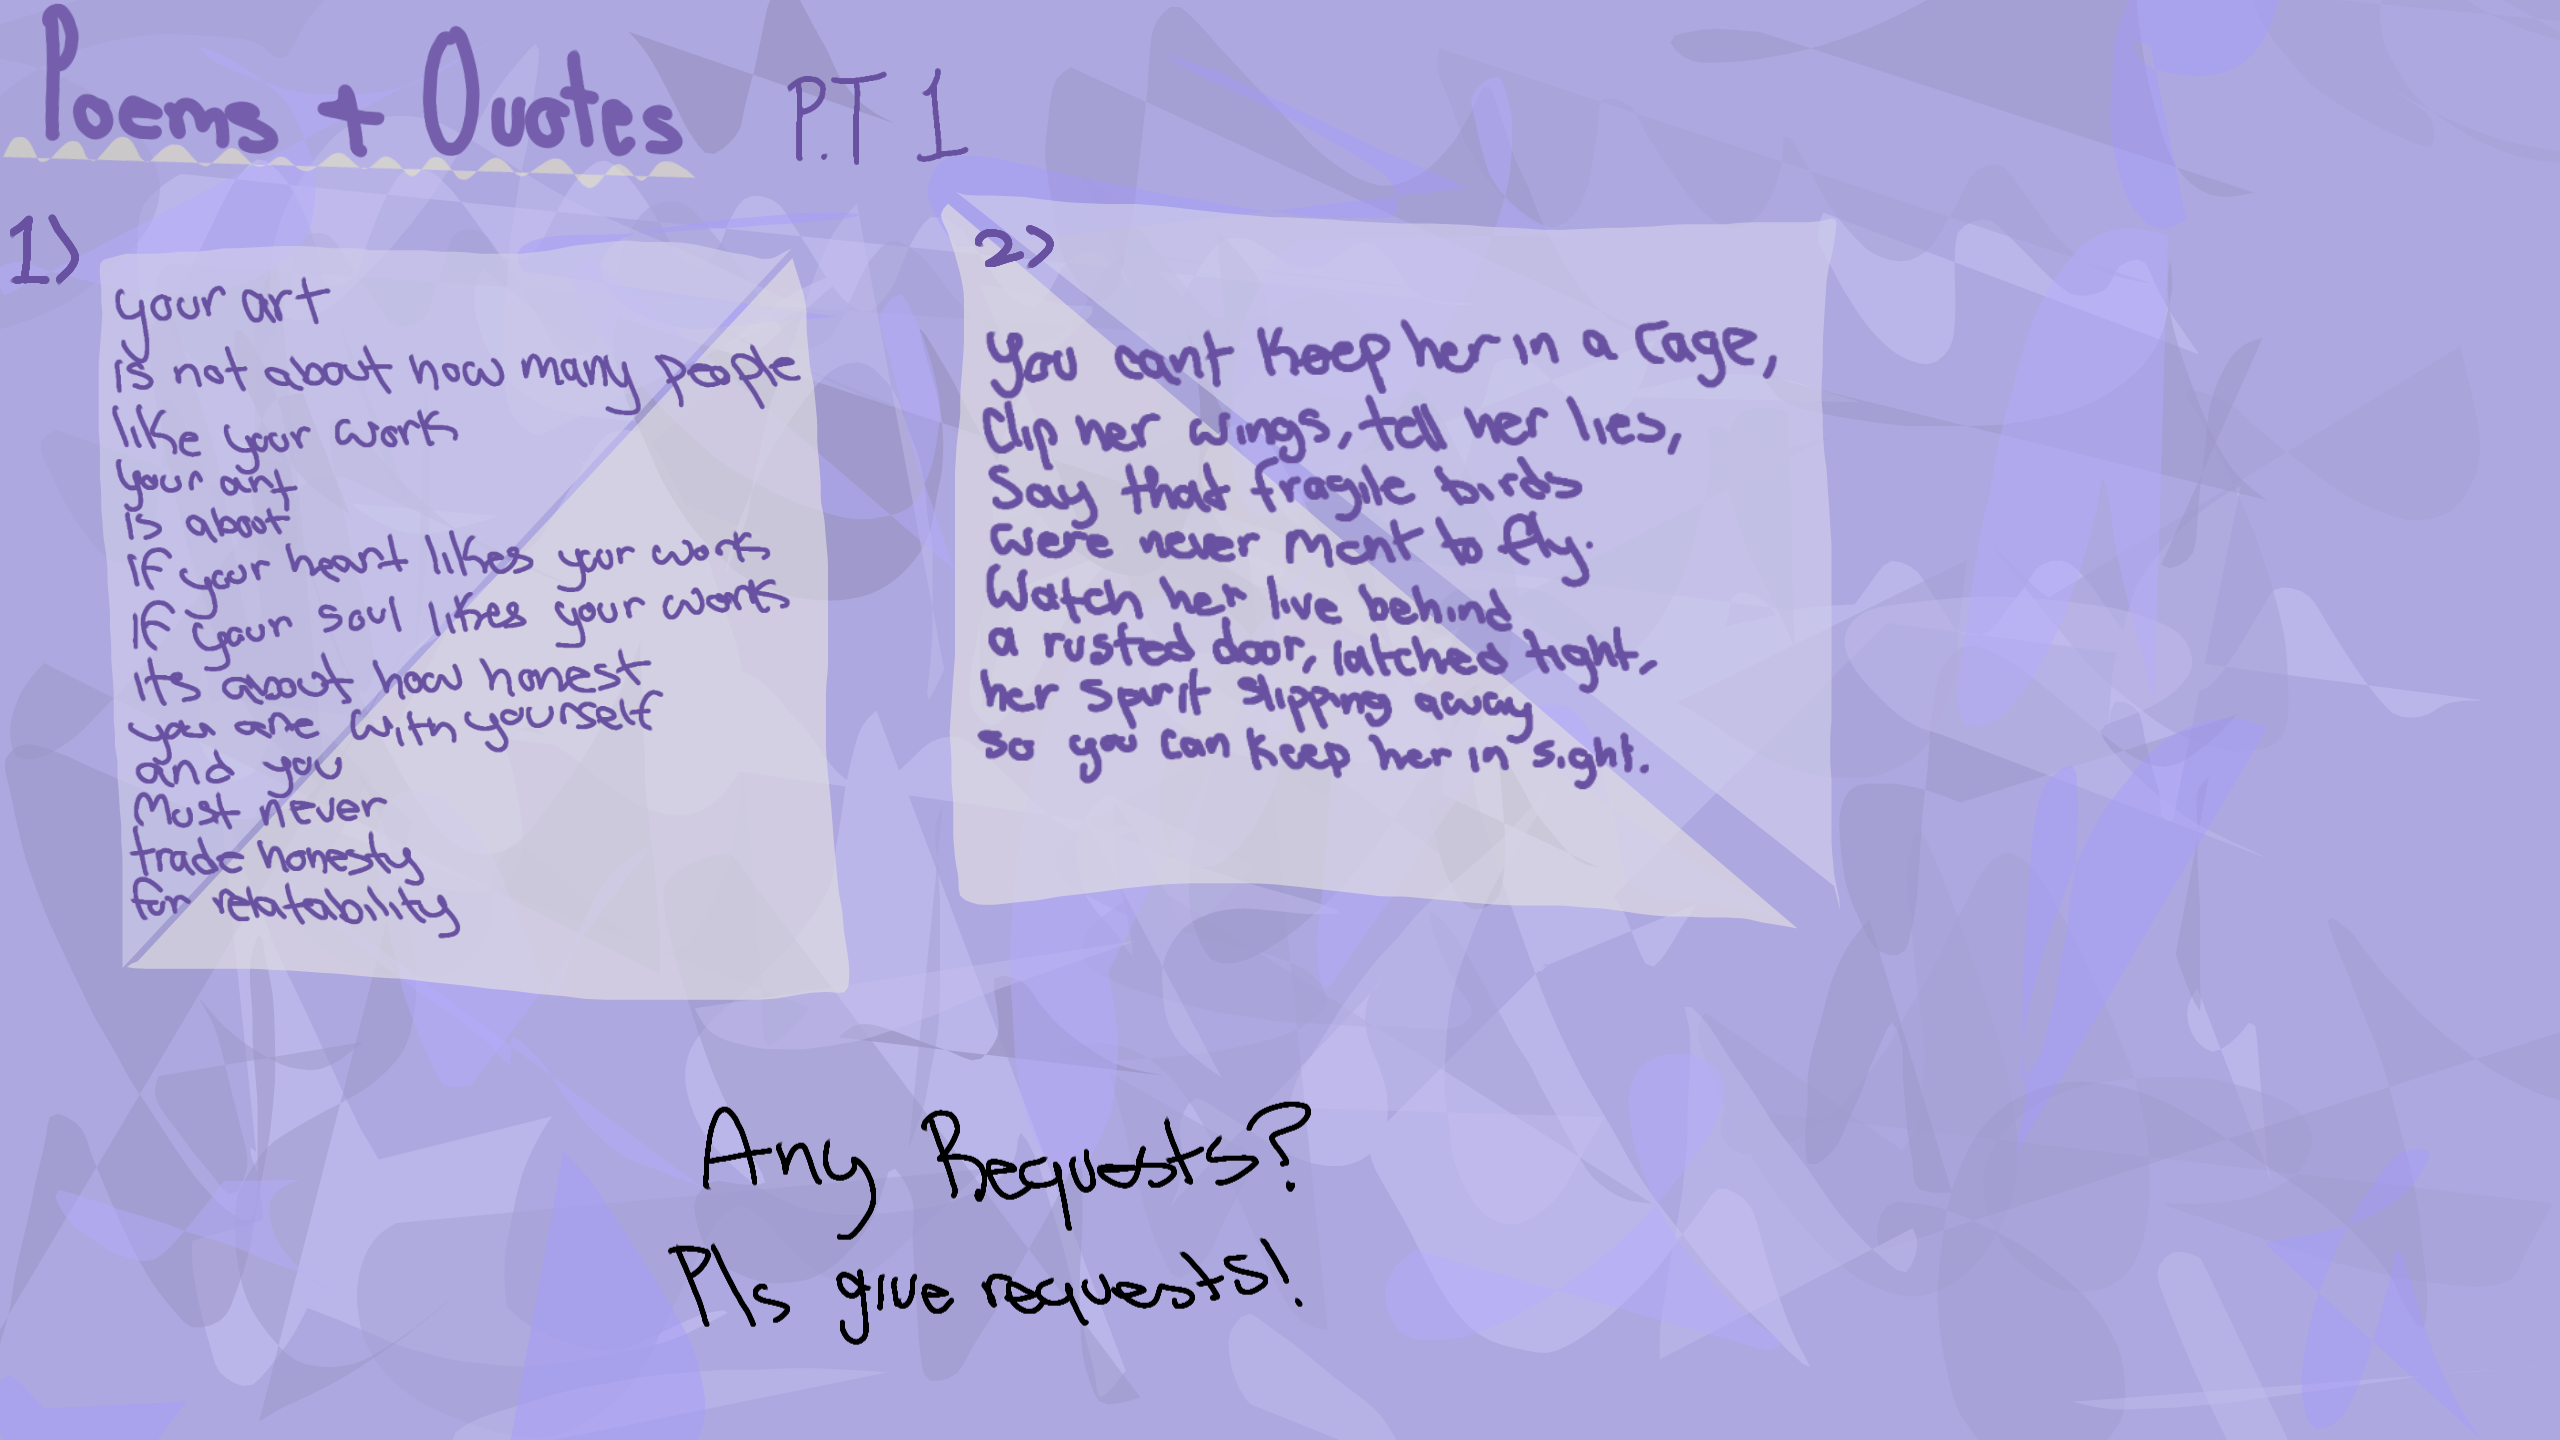 Poems + Quotes PT 1
1)
your art
is not about how many people
like your work
your art
is about
if your heart likes your work
if your soul likes your work
it's about how honest
you are with yourself
and you
Must never
trade honesty
for relatability
2)
You cant keep her in a cage,
Clip her wings, tell her lies,
Say that fragile birds
were never ment to fly.
Watch her live behind
a rusted door, latched tight,
her spirit slipping away
so you can keep her in sight.
Any Requests?
Pls give requests!